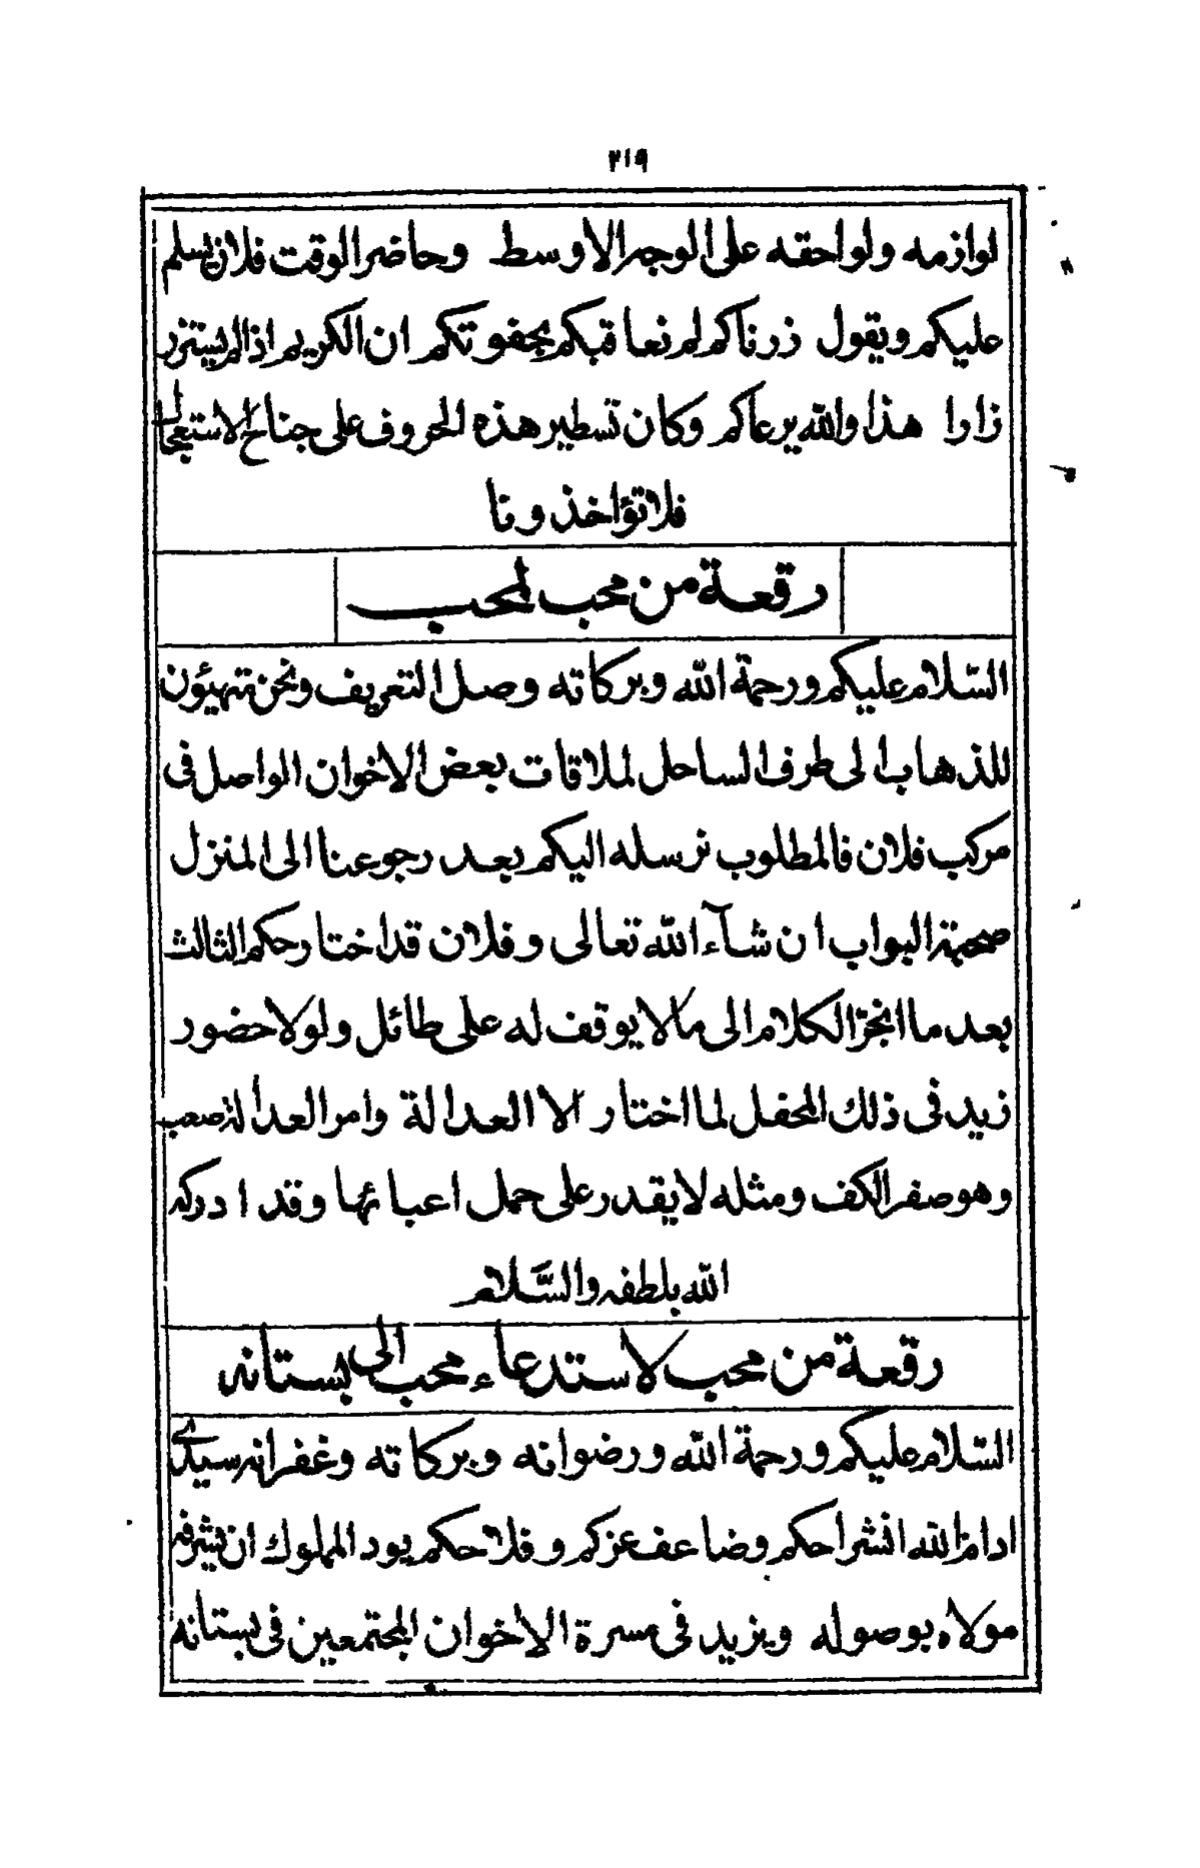 ٢١٩
لوازمه ولواحقه على الوجه الاوسط وحاضر الوقت فلان يسلم
عليكم ويقول زرناكم لم نعاقبكم بجفوتكم ان الكريم اذا لم يستزر
زارا هذا والله يرعاكم وكان تسطير هذه الحروف على جناح الاستعجال
فلا تؤاخذونا
رقعة من محب لمحب
السّلام عليكم ورحمة الله وبركاته وصل التعريف ونحن متهيئون
للذهاب الى طرف الساحل لملاقات بعض الاخوان المواصل فى
مركب فلان فالمطلوب نرسله اليكم بعد رجوعنا الى المنزل
صحبة البواب ان شآء الله تعالى وفلان قد اختار حكم الثالث
بعد ما انجرّ الكلام الى ما لا يوقف له على طائل ولولا حضور
زيد فى ذلك المحفل لما اختار الا العدالة وامر العدالة صعب
وهو صفر الكف ومثله لا يقدر على حمل اعبائها وقد ادركه
الله بلطفه والسَّلام
رقعة من محب لاستدعاء محب الى بستانه
السّلام عليكم ورحمة الله ورضوانه وبركاته وغفرانه سيدى
ادام الله انشراحكم وضاعف عزكم وفلاحكم يود المملوك ان يشرفه
مولاه بوصوله ويزيد فى مسرة الاخوان المجتمعين فى بستانه